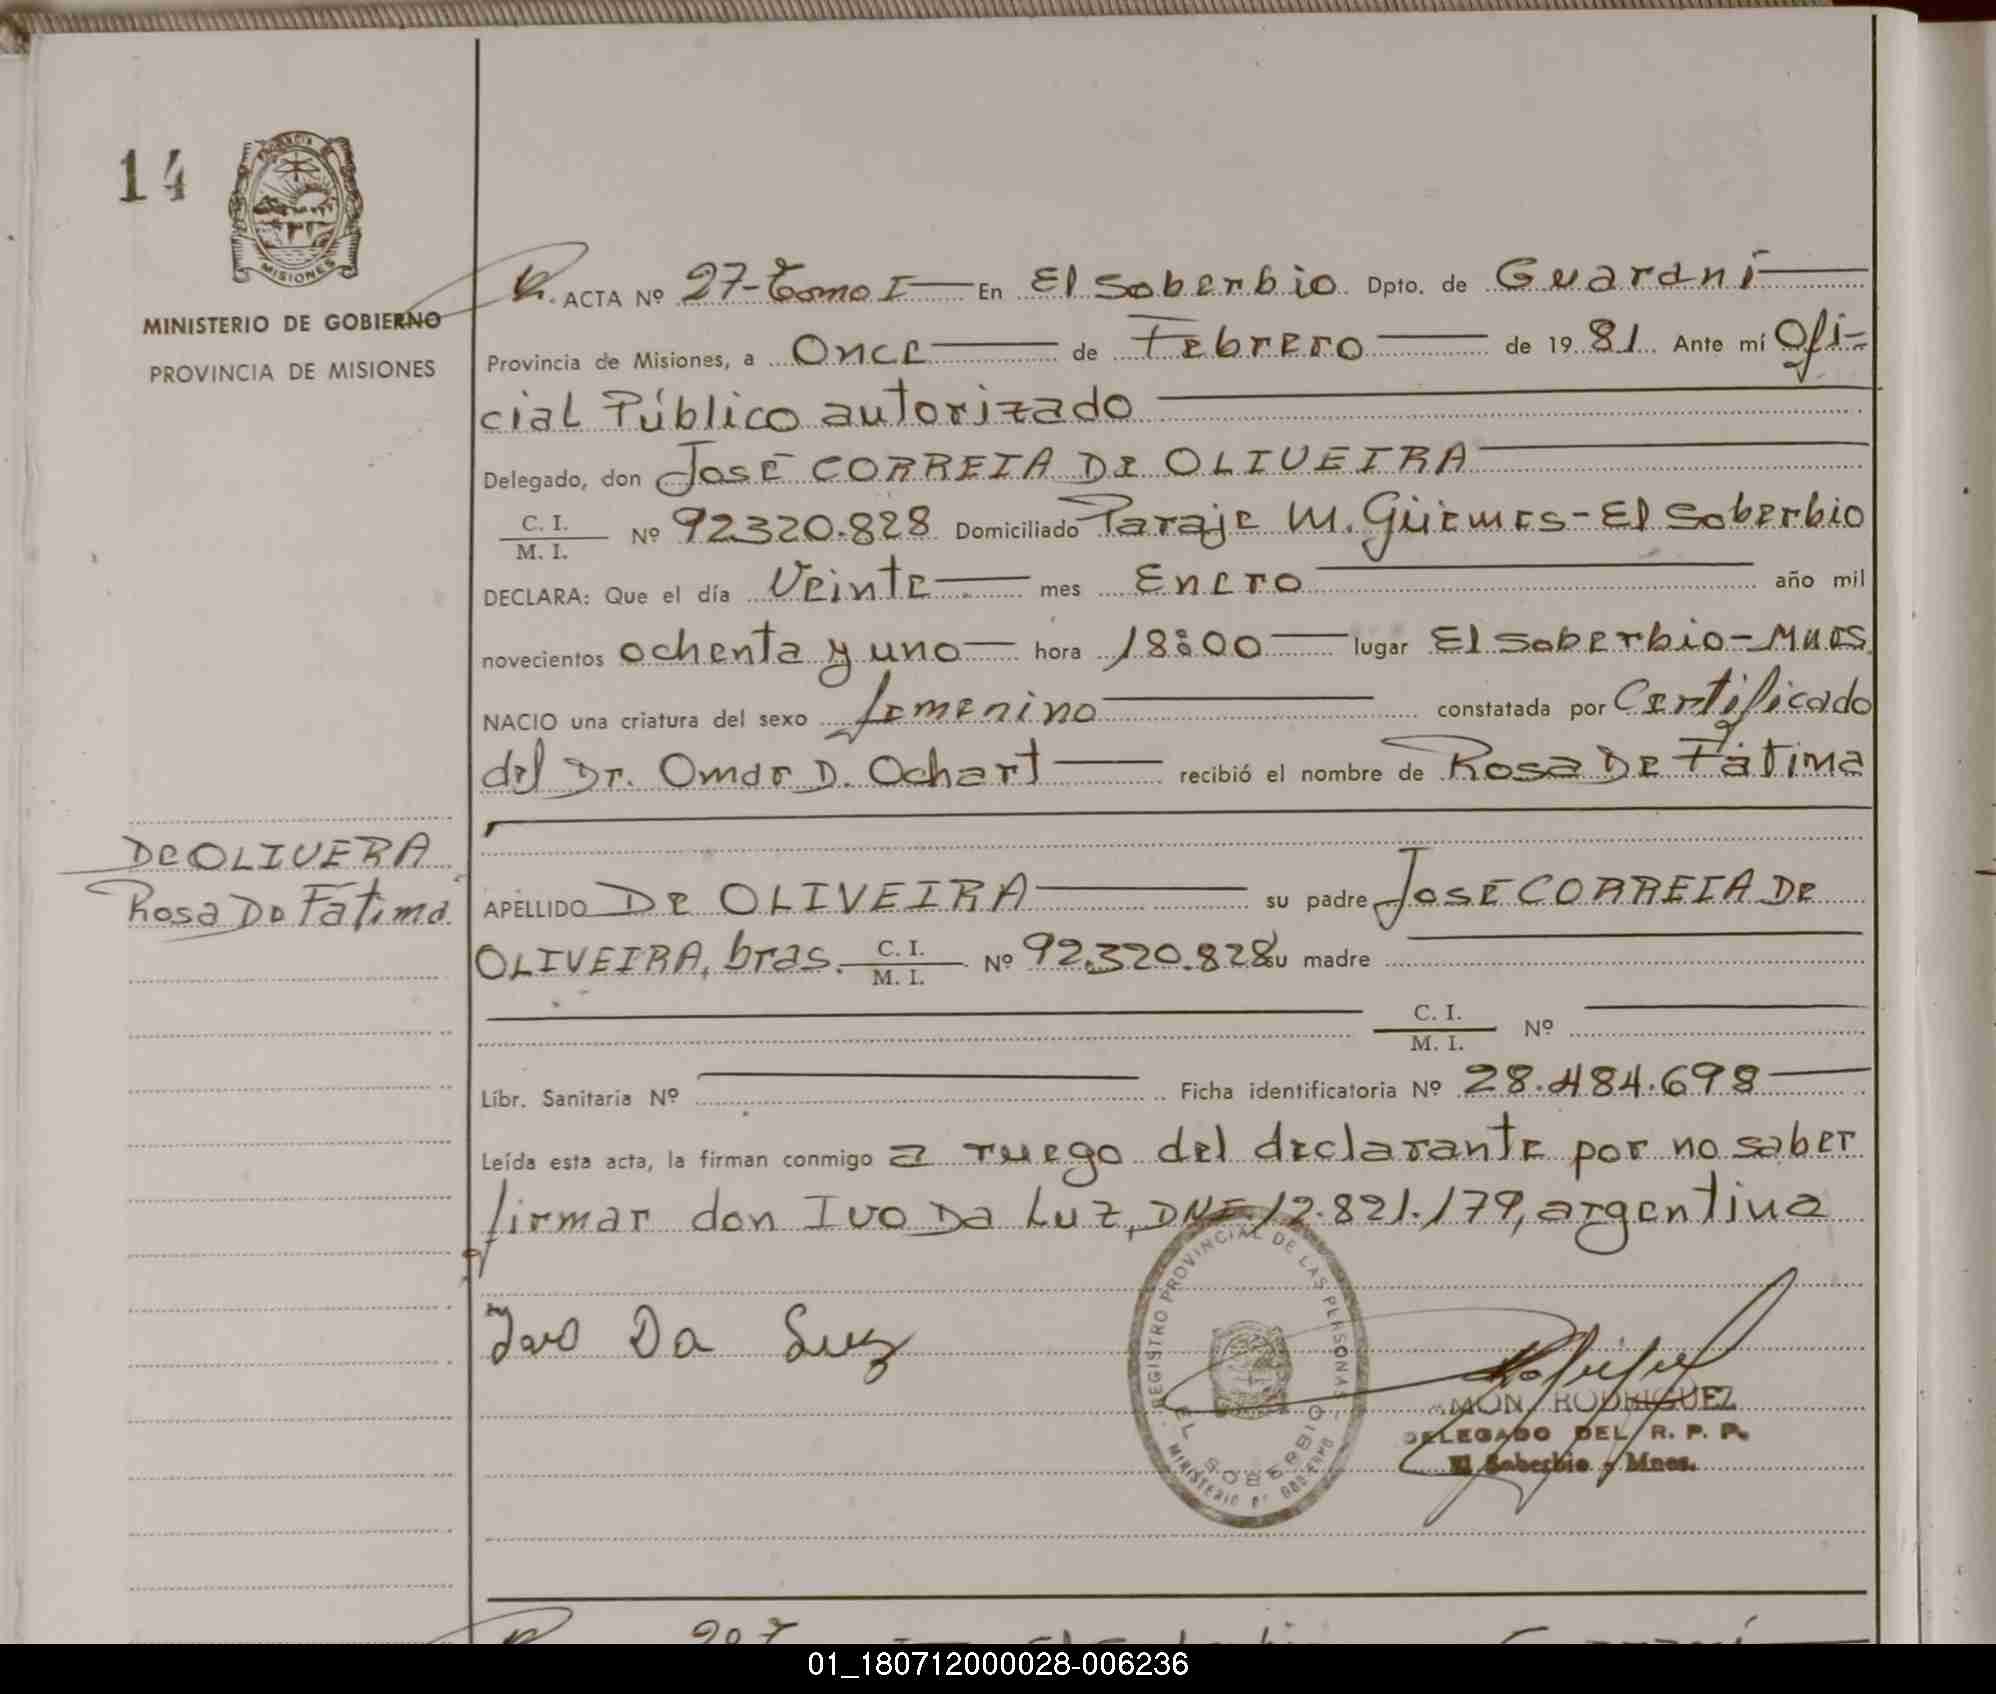 14
PROVINCIA DE
MISIONES
MINISTERIO DE GOBIERNO
PROVINCIA DE MISIONES
ACTA Nº 27-Tomo I — En El Soberbio Dpto. de Guaraní
Provincia de Misiones, a Once de Febrero de 1981 Ante mí Ofi=
cial Público autorizado
Delegado, don José CORREIA De OLIVEIRA
C. I.
M. I.
Nº 92320.828 Domiciliado Paraje M. Güemes - El Soberbio
DECLARA: Que el día Veinte mes Enero año mil
novecientos ochenta y uno — hora 18:00 lugar El Soberbio - Mnes
NACIO una criatura del sexo femenino constatada por Certificado
del Dr. Omar D. Ochart recibió el nombre de Rosa De Fátima
De OLIVERA
Rosa De Fátima.
APELLIDO De OLIVEIRA su padre José CORREIA De
OLIVEIRA, bras. C. I. M. I. Nº 92.320.828 su madre
C. I.
M. I.
Nº
Libr. Sanitaria Nº Ficha identificatoria Nº 28.484.698
Leída esta acta, la firman conmigo a ruego del declarante por no saber
firmar don Ivo Da Luz, DNI. 12.821.179, argentino
Ivo Da Luz
REGISTRO PROVINCIAL DE LAS PERSONAS
EL SOBERBIO
MINISTERIO DE GOBIERNO
RAMON RODRIGUEZ
DELEGADO DEL R. P. P.
El Soberbio - Mnes.
01_180712000028-006236